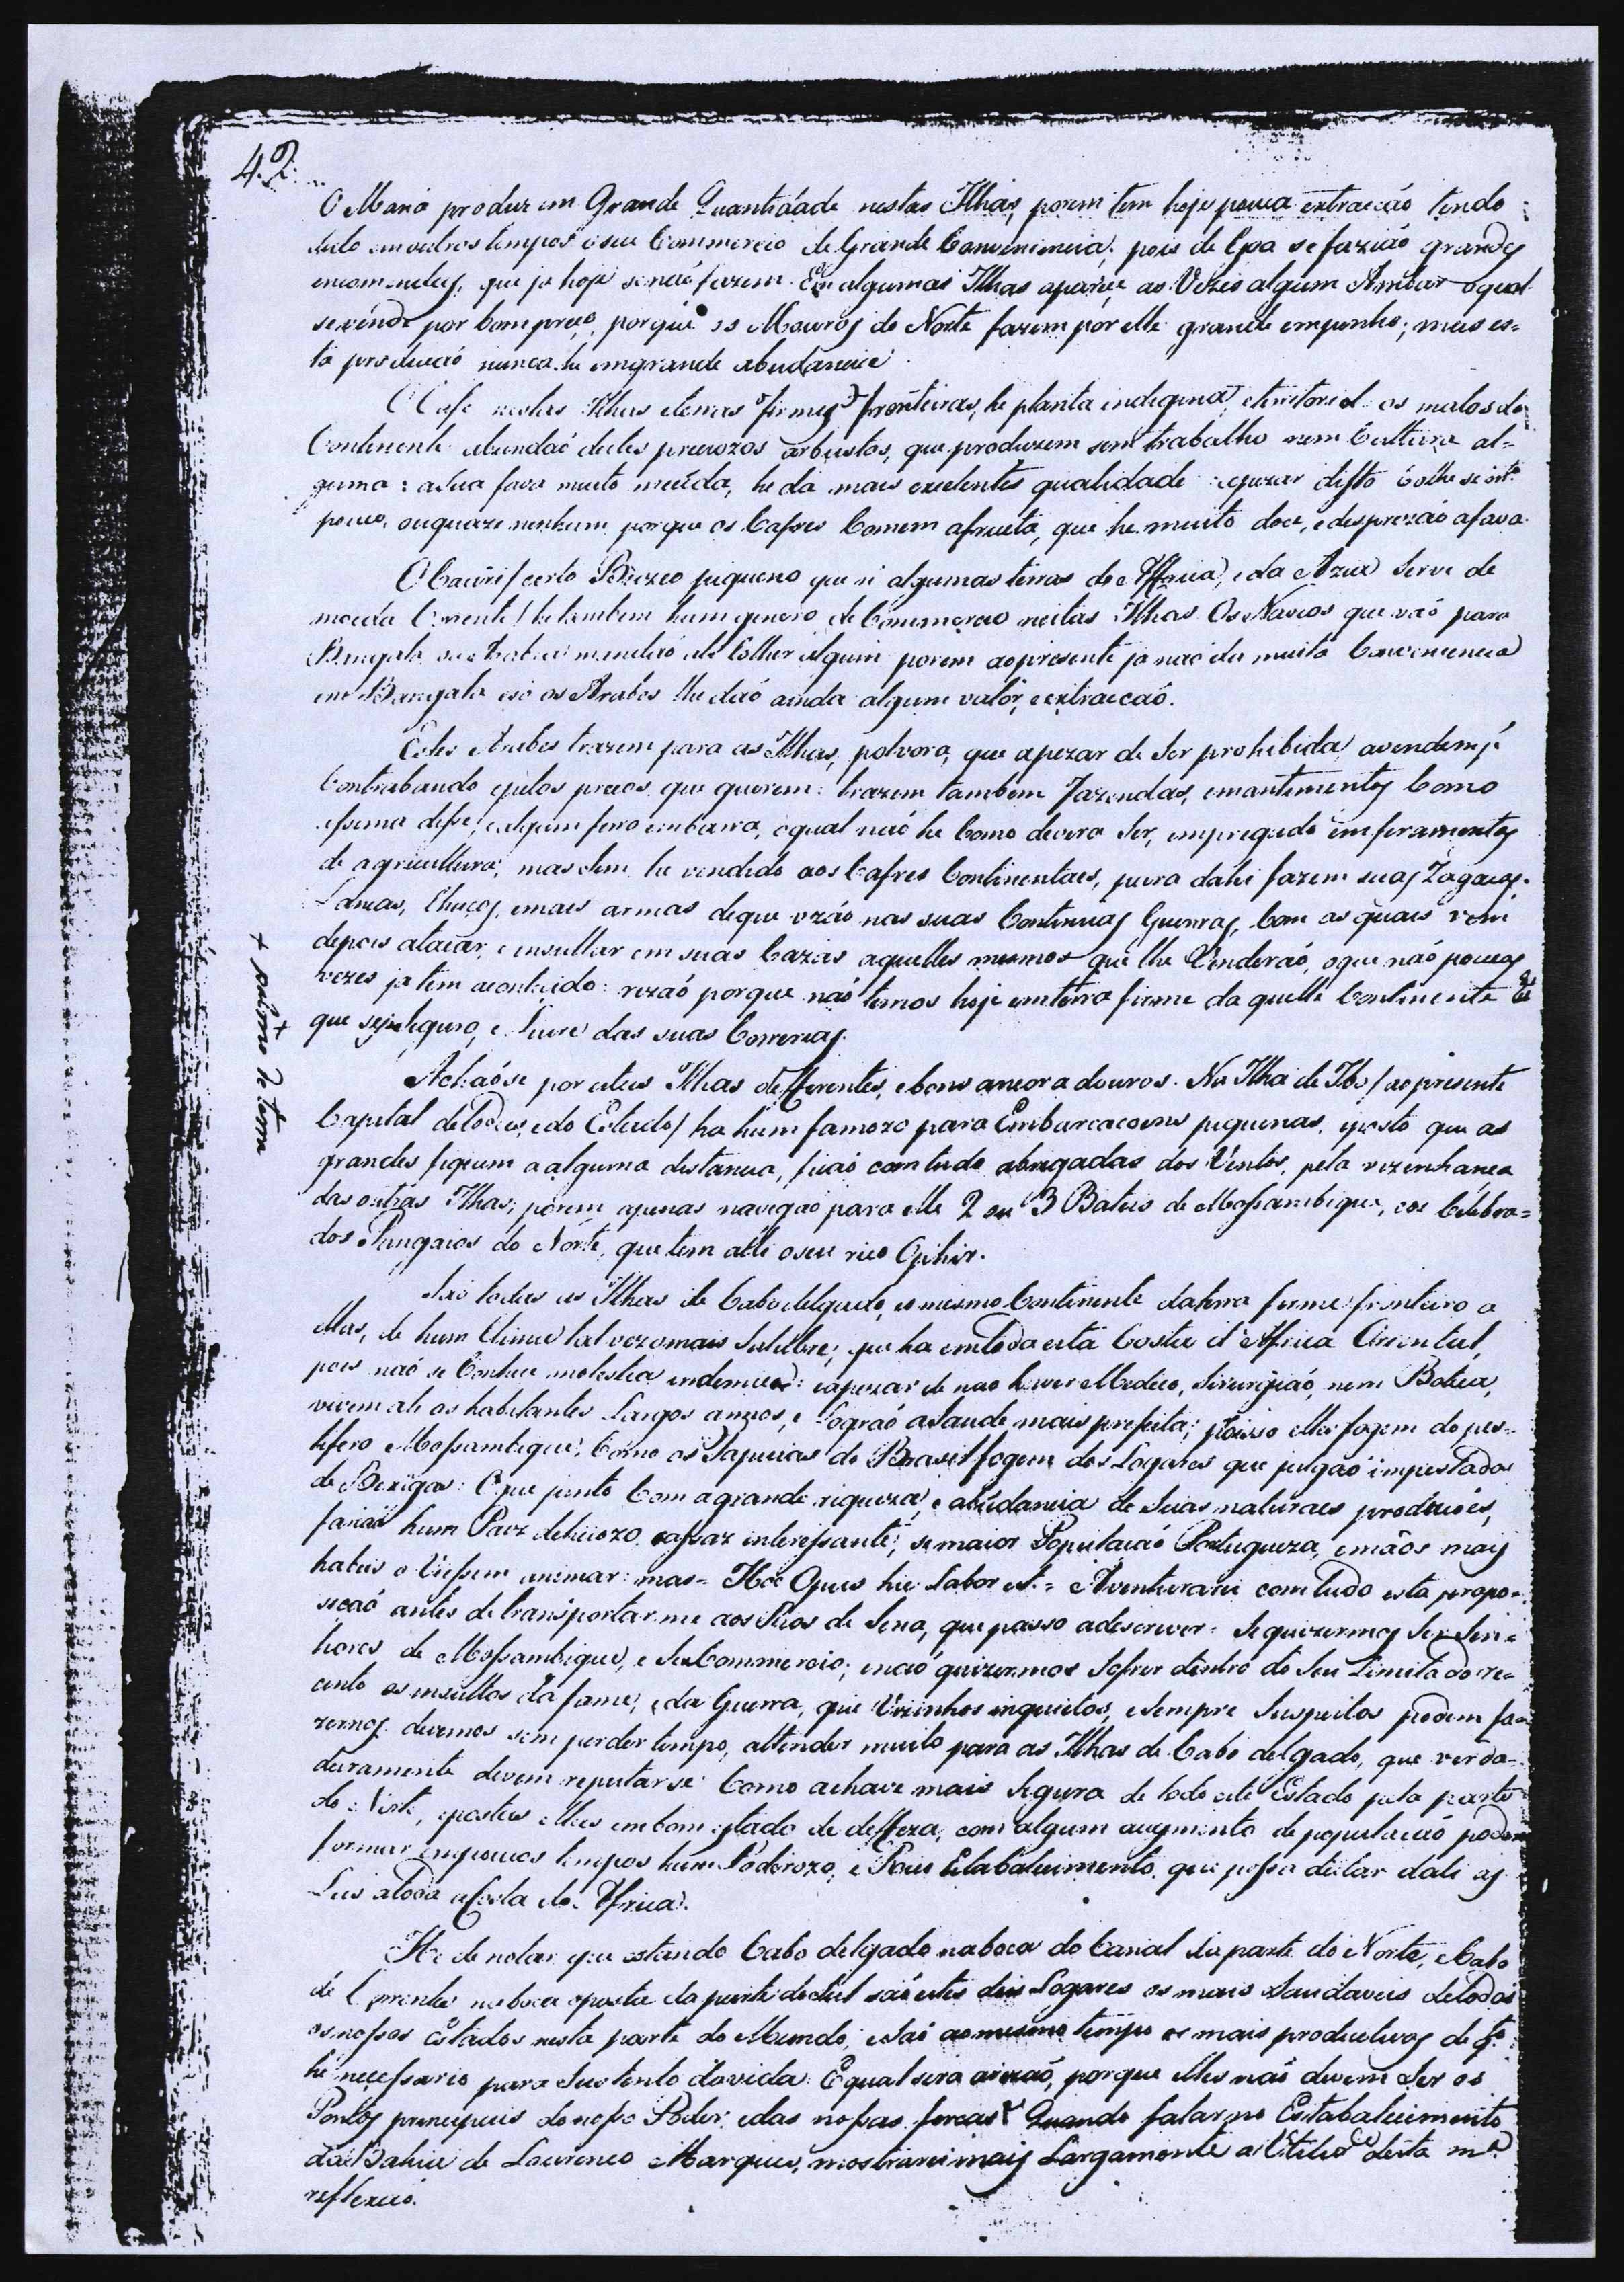 42.
O Maná produz em Grande Quantidade nestas Ilhas, porem tem hoje pouca extracção tendo
sido em outros tempos o seu Commercio de Grande Conveniencia, pois de Goa se fazião grandes
encomendas, que ja hoje se não fazem. Em algumas Ilhas aparece as Vezes algum Ambar o qual
se vende por bom preço, porque os Mouros do Norte fazem por elle grande empenho; mas es=
ta producció nunca he em grande abudancia.
O Cafe nestas Ilhas e terras firmes fronteiras, he planta indigena, e territorial: os matos do
Continente abundaó destes preciozos arbustos, que produzem sem trabalho nem Cultura al=
guma: a sua fava muito miuda, he da mais excelentes qualidade: apezar disto Colhe se mt.º
pouco, ou quaze nenhum porque os Cafres Comem a fructa, que he muito doce, e desprezáo a fava.
O Caurî / certo Buzeo piqueno que ñ algumas terras de Africa, e da Azia Serve de
moeda Corrente / he tambem hum genero de Commercio nestas Ilhas. Os Navios que vaó para
Bengala ou mandaó ali Colher algum porem ao presente ja nao da muita Conveniencia
em Bangala e só os Arabes lhe daó ainda algum valor, e extraccaó.
Estes Arabes trazem para as Ilhas, polvora, que apezar de Ser prohibida, a vendem p.r
Contrabando e pelos precos que querem: trazem tambem Fazendas, e mantimentos Como
assima disse; e algum ferro em barra, o qual naó he Como devera Ser, empregado em feramentas
de agricultura, mas Sim he vendido aos Cafres Continentaes, para dahi fazem suas Zagaias,
Lancas, Chuços, e mais armas de que uzáo nas suas Continuas Guerras, Com as quais vem
depois atacar, e insultar em suas Cazas aquelles mesmos que lhe Venderaó, o que náo poucas
vezes ja tem acontecido: rezaó porque náo temos hoje em terra firme da quelle Continente
que seja Seguro, e Livre das suas Correrias.
Achaó se por estas Ilhas differentes, e bons ancora douros. Na Ilha de Ibo / ao prisente
Capital de todas, e do Estado / ha hum famozo para Embarcacoens piquenas, e posto que as
grandes fiquem a alguma distancia, ficaó com tudo abrigadas dos Ventos, pela vizinhanca
das outras Ilhas; porem apenas navegaó para elle 2 ou 3 Bateis de Mossambique, e os Celebra=
dos Pangaios do Norte, que tem alli o seu rico Ophir.
Saó todas as Ilhas de Cabo delgado, e o mesmo Continente da terra firme fronteiro a
ellas, de hum Clima tal vez o mais Salubre, que ha em toda esta Costa d'Africa Oriental,
pois naó se Conhece molestia endemica: e apezar de nao haver Medico, Sirurgiaó, nem Botica,
vivem ali os habitantes Largos annos, e Lograó a Saude mais prefeita; por isso elles fogem do pes=
tifero Mossambique, Como os Tapuias do Brasil fogem dos Lugares que julgaó impestados
de Bexigas: O que junto Com a grande riqueza, e abúdancia de Suas naturaes produçóes,
fariaó hum Paiz delicioso, e assaz interessante, se maior Populacaó Portugueza, e mãos mais
habeis o Viessem animar: mas = Hoc Opus hic Labor est. = Aventurarei com tudo esta propo=
sicaó antes de transportar me aos Rios de Sena, que passo a descrever = Se quizermos Ser Sen=
hores de Mossambique, e Seu Commercio; e naó quizermos Sofrer dentro do Seu Limitado re=
cinto os insultos da fome, e da Guerra, que Vizinhos inquietos, e Sempre Suspeitos podem fa=
zernos, devemos sem perder tempo, attender muito para as Ilhas de Cabo delgado, que verda=
deiramente devem reputarse Como a chave mais Segura de todo este Estado pela parte
do Norte, e postas ellas em bom estado de deffeza, com algum augmento de populacaó podem
formar em poucos tempos hum Poderozo, e Rico Estabalecimento, que possa dictar dali as
Leis a toda a Costa de Africa.
He de notar que estando Cabo delgado na boca do Canal da parte do Norte, e Cabo
de Correntes na boca oposta da parte do Sul saó estes dois Logares os mais Saudaveis de todos
os nossos Estados nesta parte do Mundo, e Saó ao mesmo tempo os mais productivos de q.to
he necessario para Sustento da vida. E qual sera a rezaó, porque elles naó devem Ser os
Pontos principais do nosso Poder, e das nossas forcas? Quando falar no Estabalecimento
da Bahia de Lourenco Marques, mostrarei mais Largamente a Utilid.e desta m.a
reflexaó.